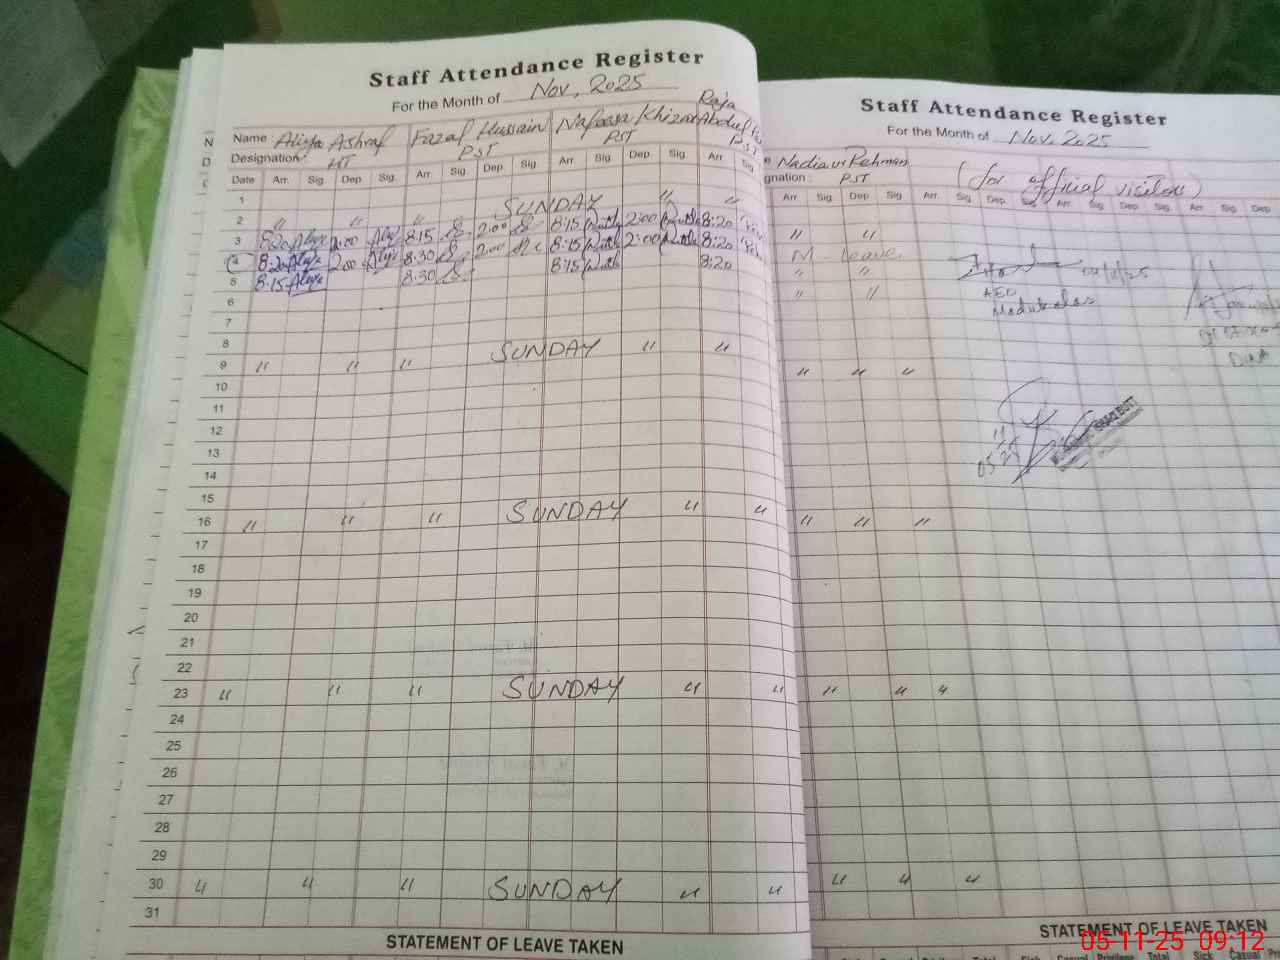 Staff Attendance Register
For the Month of Nov, 2025
Name: Aliya Ashraf Fazal Hussain Nafeesa Khizar Raja Abdul
Designation: HT PST PST PST
Date Arr. Sig. Dep. Sig. Arr Sig. Dep Sig. Arr Sig. Dep. Sig. Arr Sig
1
2 " " " SUNDAY " "
3 8:20 2:00 8:15 2:00 8:15 2:00 8:20
4 8:20 2:00 8:30 2:00 8:15 2:00 8:20
5 8:15 8:30 8:15 8:20
6
7
8
9 " " " SUNDAY " "
10
11
12
13
14
15
16 " " " SUNDAY " "
17
18
19
20
21
22
23 " " " SUNDAY " "
24
25
26
27
28
29
30 " " " SUNDAY " "
31
STATEMENT OF LEAVE TAKEN
Staff Attendance Register
For the Month of Nov. 2025
Nadia ur Rehman (for official visitors)
gnation: PST
Arr Sig. Dep Sig. Arr. Sig. Dep Sig Arr Sig. Dep Sig. Arr Sig Dep Sig.
" "
M - Leave
" "
" "
AEO
" " "
05 11 25
" " "
" " "
" " "
STATEMENT OF LEAVE TAKEN
05-11-25 09:12